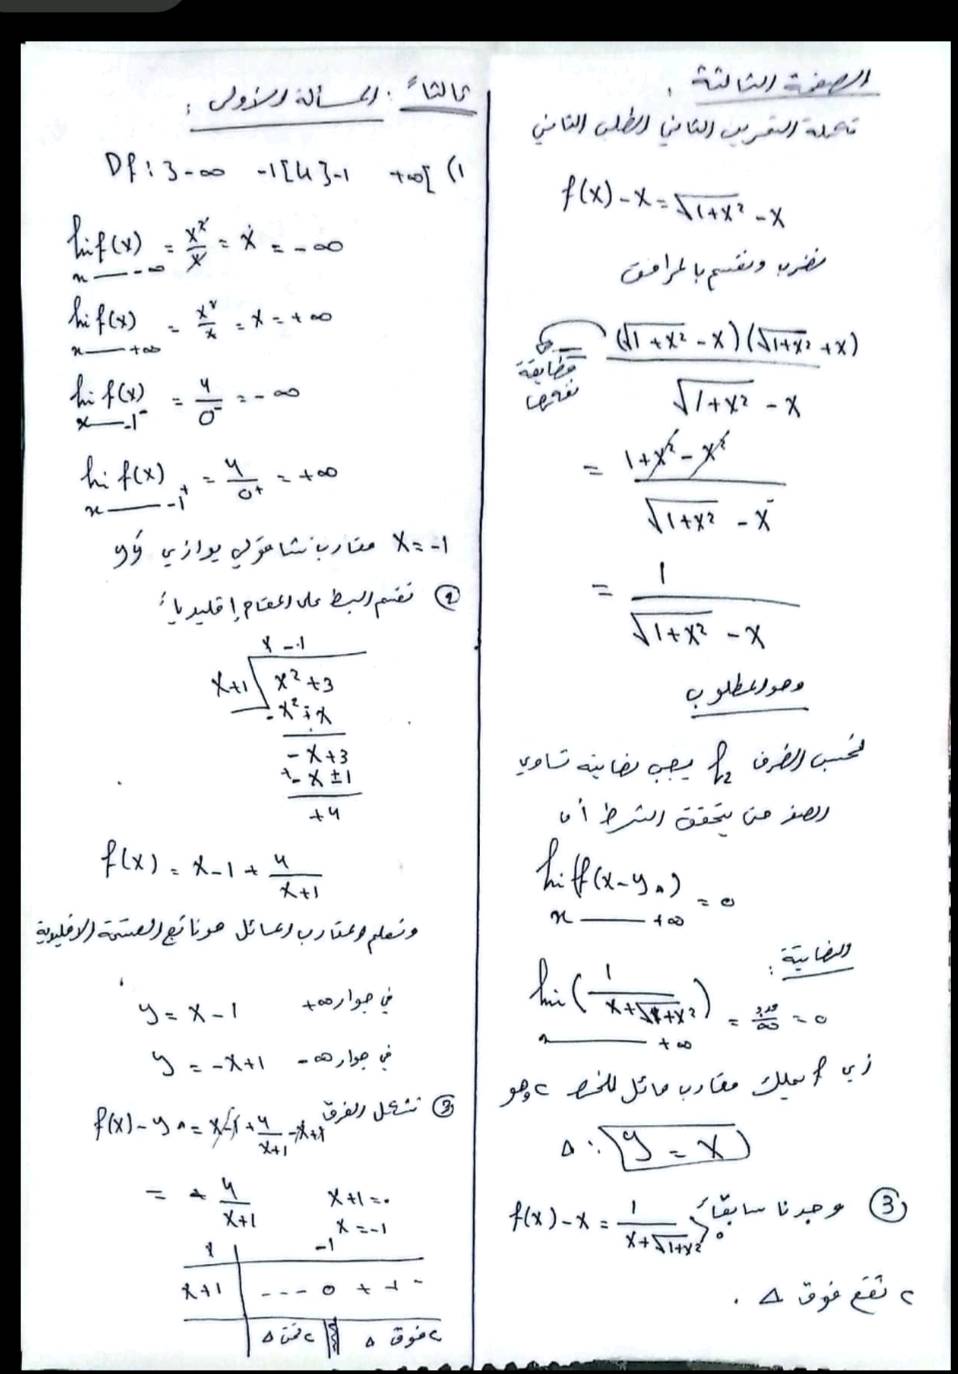 الصفحة الثالثة :
تكملة التمرين الثاني الطلب الثاني
f(x) - x = √1+x² - x
نضرب ونقسم بالمرافق
(√1+x² - x)(√1+x² + x)
√1+x² - x
مطابقة
= 1+x² - x²
√1+x² - x
= 1
√1+x² - x
وهو المطلوب
نحسب الفرق يجب نهايته تساوي
الصفر حتى يتحقق الشرط أن
lim f(x - yₙ) = 0
x → +∞
والنهاية :
lim ( 1 / x+√1+x² ) = عدد/∞ = 0
x → +∞
f يملك مقارب مائل للخط c وهو
Δ : y = x
③ وجدنا سابقاً f(x) - x = 1 / x+√1+x² > 0
c تقع فوق Δ .
ثالثاً : المسألة الأولى :
1) Df : ]-∞ -1[ U ]-1 +∞[
lim f(x) = x²/x = x = -∞
x → -∞
lim f(x) = x²/x = x = +∞
x → +∞
lim f(x) = 4/0⁻ = -∞
x → -1⁻
lim f(x) = 4/0⁺ = +∞
x → -1⁺
x = -1 مقارب شاقولي يوازي yy'
② نقسم البسط على المقام إقليدياً :
x - 1
x+1 x² + 3
-x² ∓ x
- x + 3
+- x ± 1
+4
f(x) = x - 1 + 4/x+1
ونعلم المقارب المائل هو ناتج القسمة الاقليدية
y = x - 1 في جوار +∞
y = -x + 1 في جوار -∞
③ نشكل الفرق
f(x) - yₙ = x - 1 + 4/x+1 - x + 1
= + 4/x+1
x+1 = 0
x = -1
x -1
x+1 - - - 0 + + -
c تحت Δ c فوق Δ